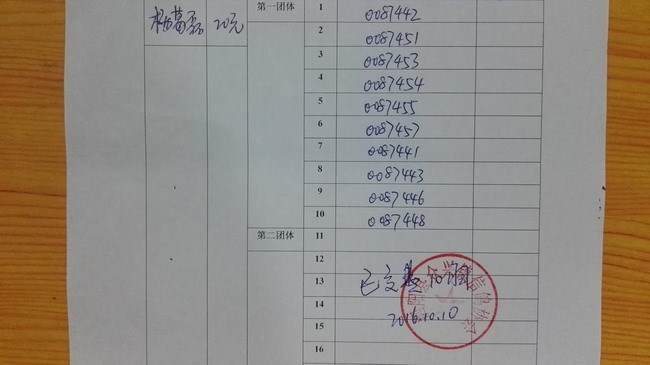 杨葛磊 20元 第一团体 1 0087442
2 0087451
3 0087453
4 0087454
5 0087455
6 0087457
7 0087441
8 0087443
9 0087446
10 0087448
第二团体 11
12
13 已交
14 2016.10.10
15
16